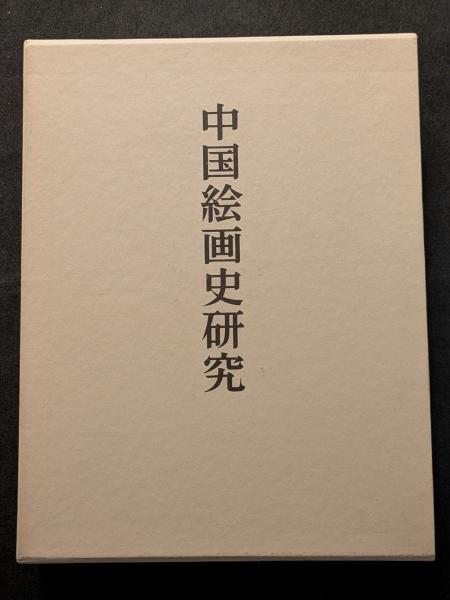 中国絵画史研究